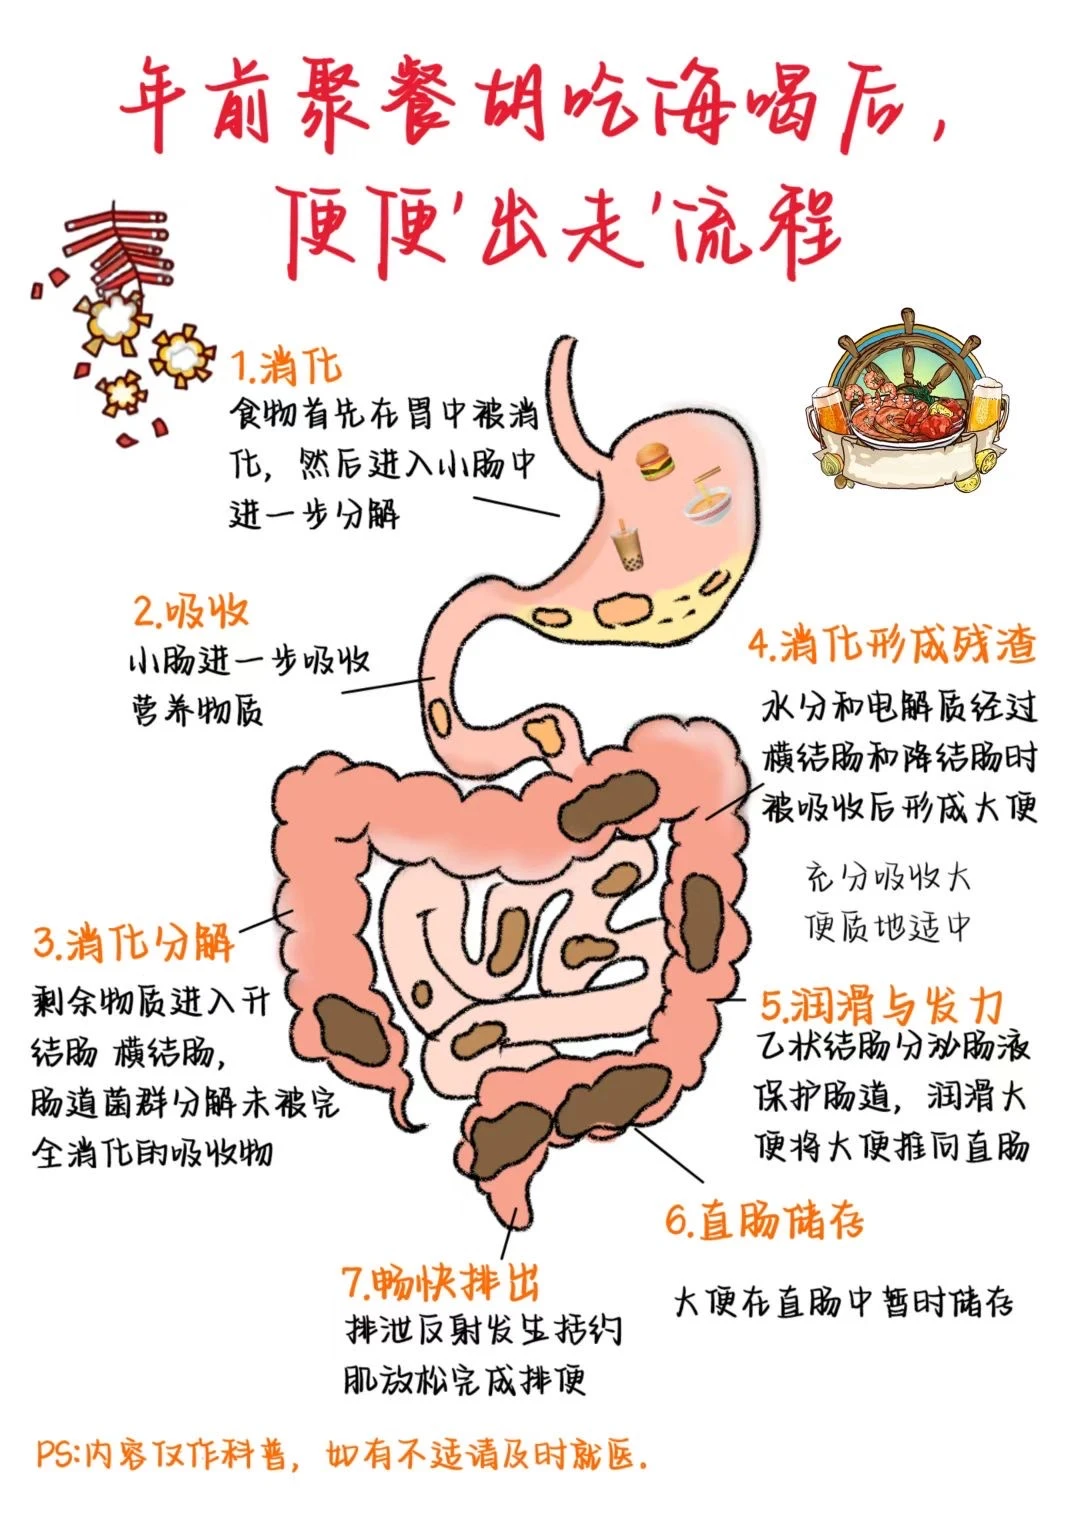 年前聚餐胡吃海喝后，
便便'出走'流程
1.消化
食物首先在胃中被消
化，然后进入小肠中
进一步分解
2.吸收
小肠进一步吸收
营养物质
3.消化分解
剩余物质进入升
结肠 横结肠，
肠道菌群分解未被完
全消化的吸收物
4.消化形成残渣
水分和电解质经过
横结肠和降结肠时
被吸收后形成大便
充分吸收大
便质地适中
5.润滑与发力
乙状结肠分泌肠液
保护肠道，润滑大
便将大便推向直肠
6.直肠储存
大便在直肠中暂时储存
7.畅快排出
排泄反射发生括约
肌放松完成排便
PS:内容仅作科普，如有不适请及时就医.